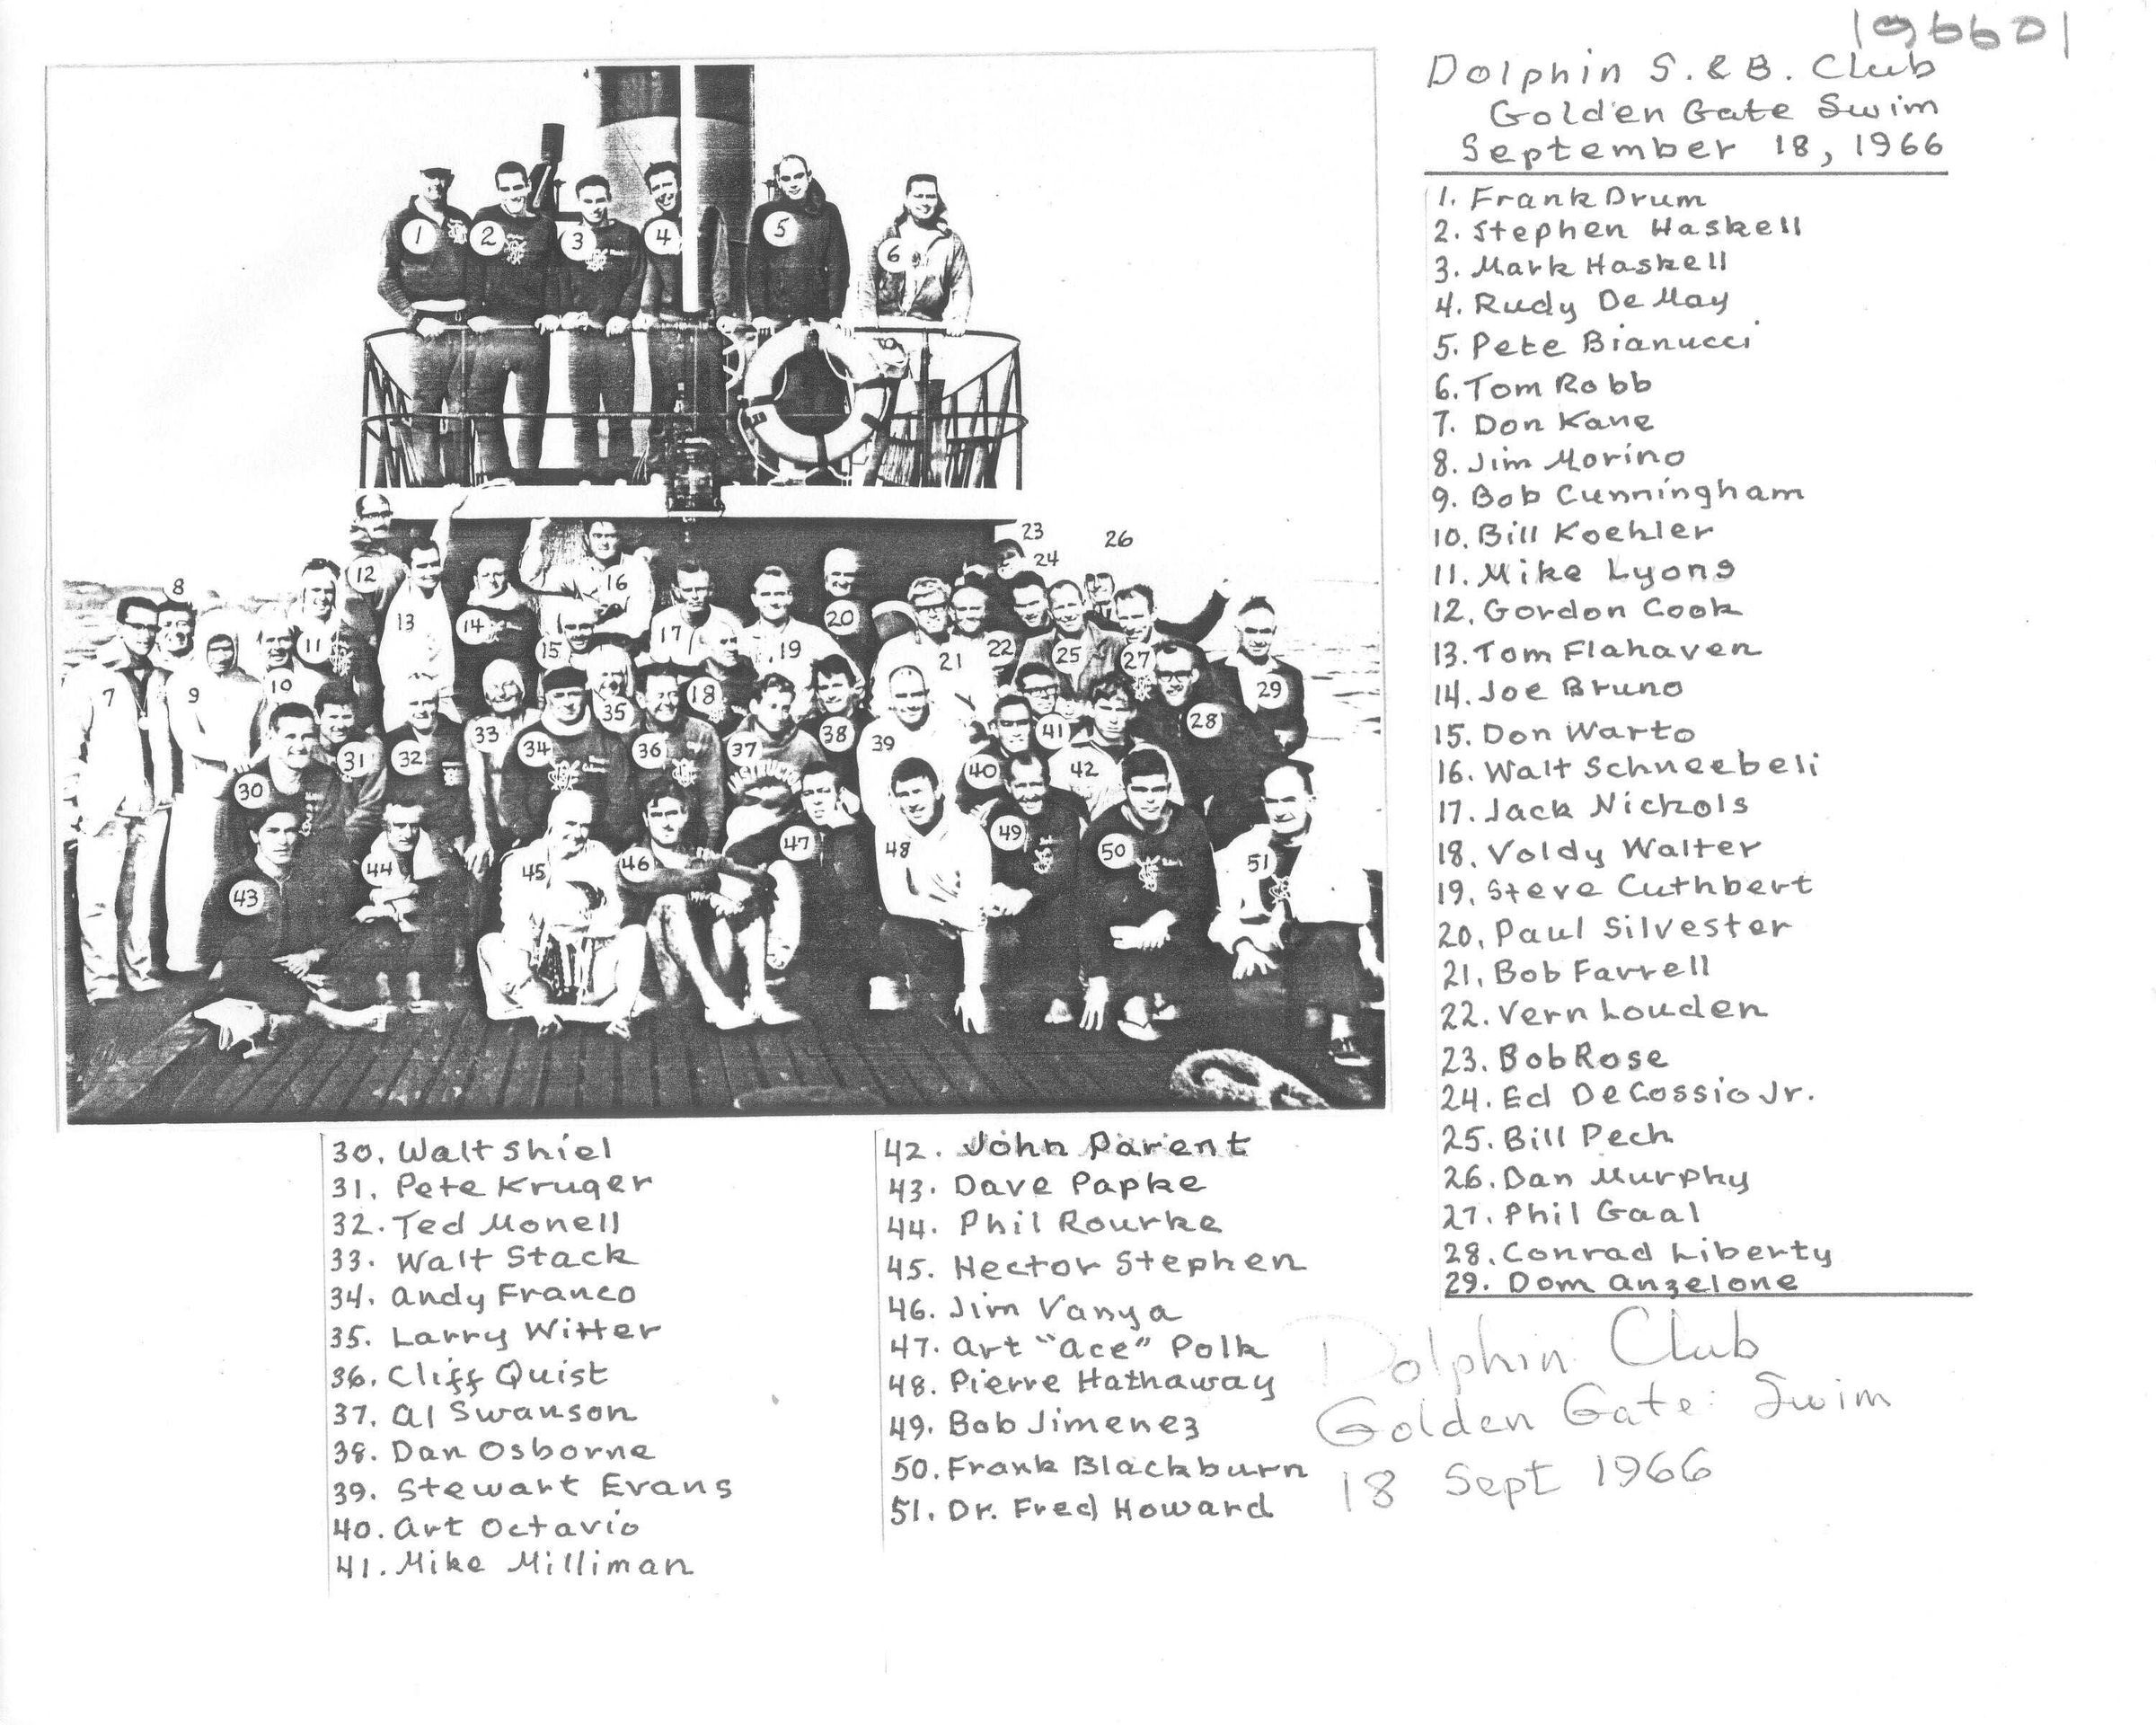 196601
Dolphin S. & B. Club
Golden Gate Swim
September 18, 1966
1. Frank Drum
2. Stephen Haskell
3. Mark Haskell
4. Rudy De May
5. Pete Bianucci
6. Tom Robb
7. Don Kane
8. Jim Morino
9. Bob Cunningham
10. Bill Koehler
11. Mike Lyons
12. Gordon Cook
13. Tom Flahaven
14. Joe Bruno
15. Don Warto
16. Walt Schneebeli
17. Jack Nichols
18. Voldy Walter
19. Steve Cuthbert
20. Paul Silvester
21. Bob Farrell
22. Vern Louden
23. Bob Rose
24. Ed DeCossio Jr.
25. Bill Pech
26. Dan Murphy
27. Phil Gaal
28. Conrad Liberty
29. Dom Anzelone
1 2 3 4 5 6
23
24 26
8 12 16
11 13 14 15 17 19 20 21 22 25 27
7 9 10 18 28 29
30 31 32 33 34 35 36 37 38 39 40 41 42
43 44 45 46 47 48 49 50 51
30. Walt Shiel
31. Pete Kruger
32. Ted Monell
33. Walt Stack
34. Andy Franco
35. Larry Witter
36. Cliff Quist
37. Al Swanson
38. Dan Osborne
39. Stewart Evans
40. Art Octavio
41. Mike Milliman
42. John Parent
43. Dave Papke
44. Phil Rourke
45. Hector Stephen
46. Jim Vanya
47. Art "Ace" Polk
48. Pierre Hathaway
49. Bob Jimenez
50. Frank Blackburn
51. Dr. Fred Howard
Dolphin Club
Golden Gate Swim
18 Sept 1966